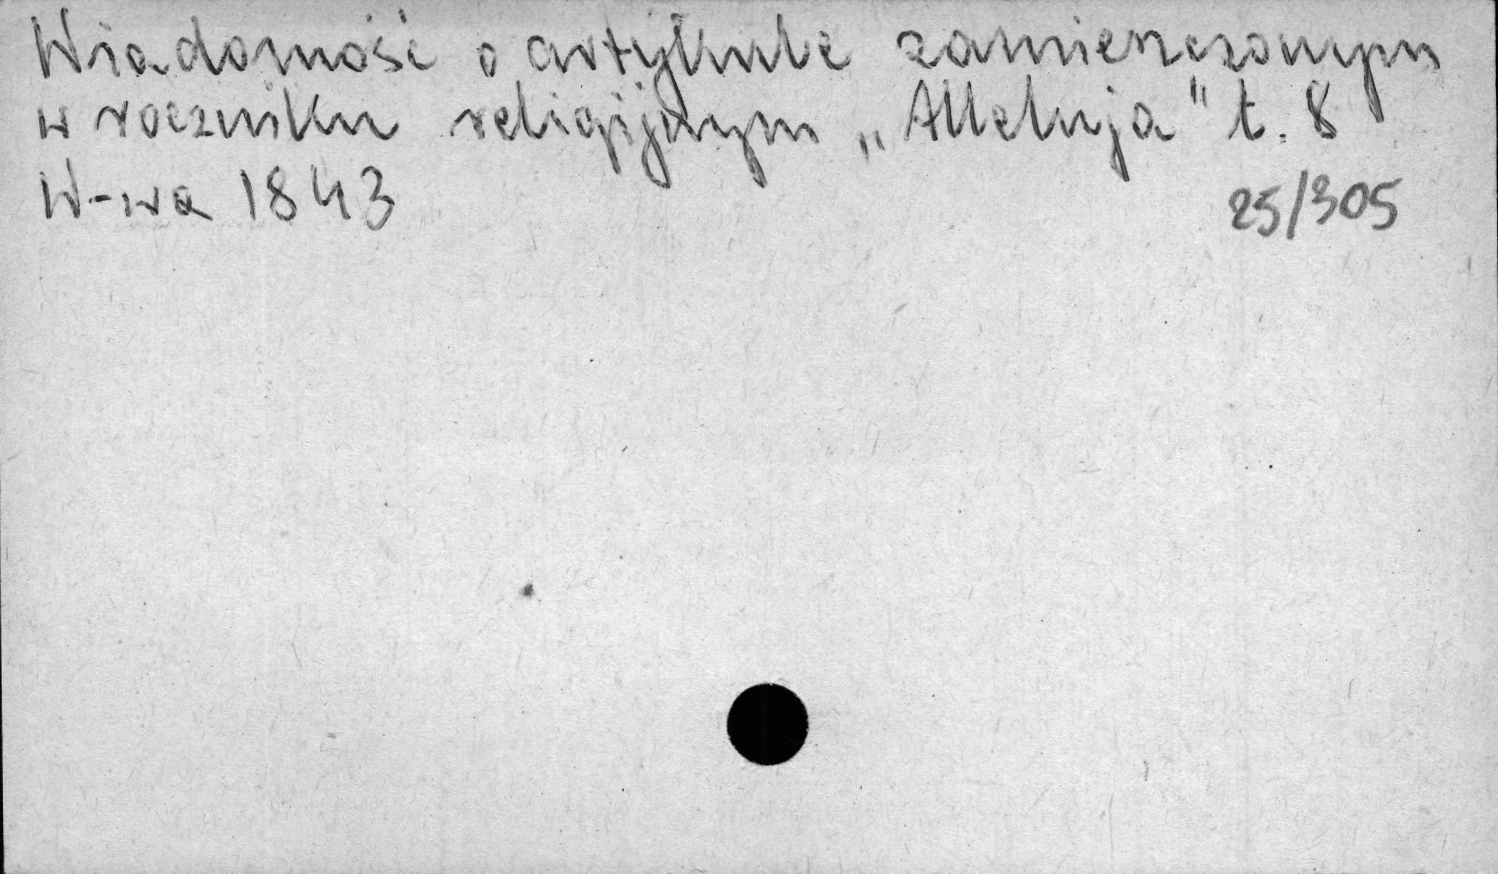 Wiadomość o artykule zamieszczonym
w roczniku religijnym „Alleluja" t. 8
W-wa 1843
25/305